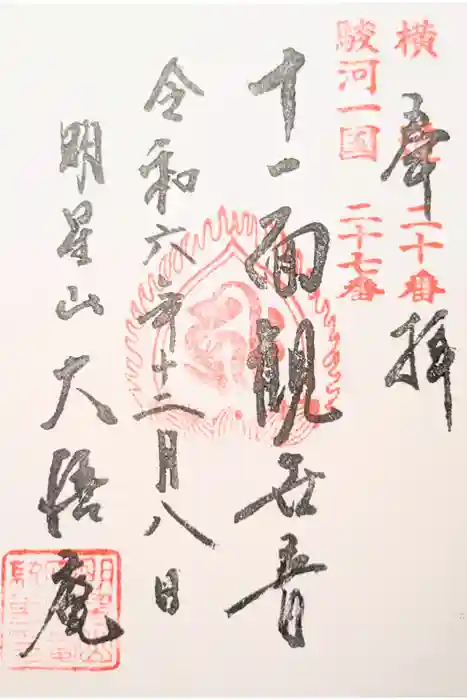 横 二十番
奉拝
駿河一国 二十七番
十一面観世音
令和六年十二月八日
明星山大悟庵